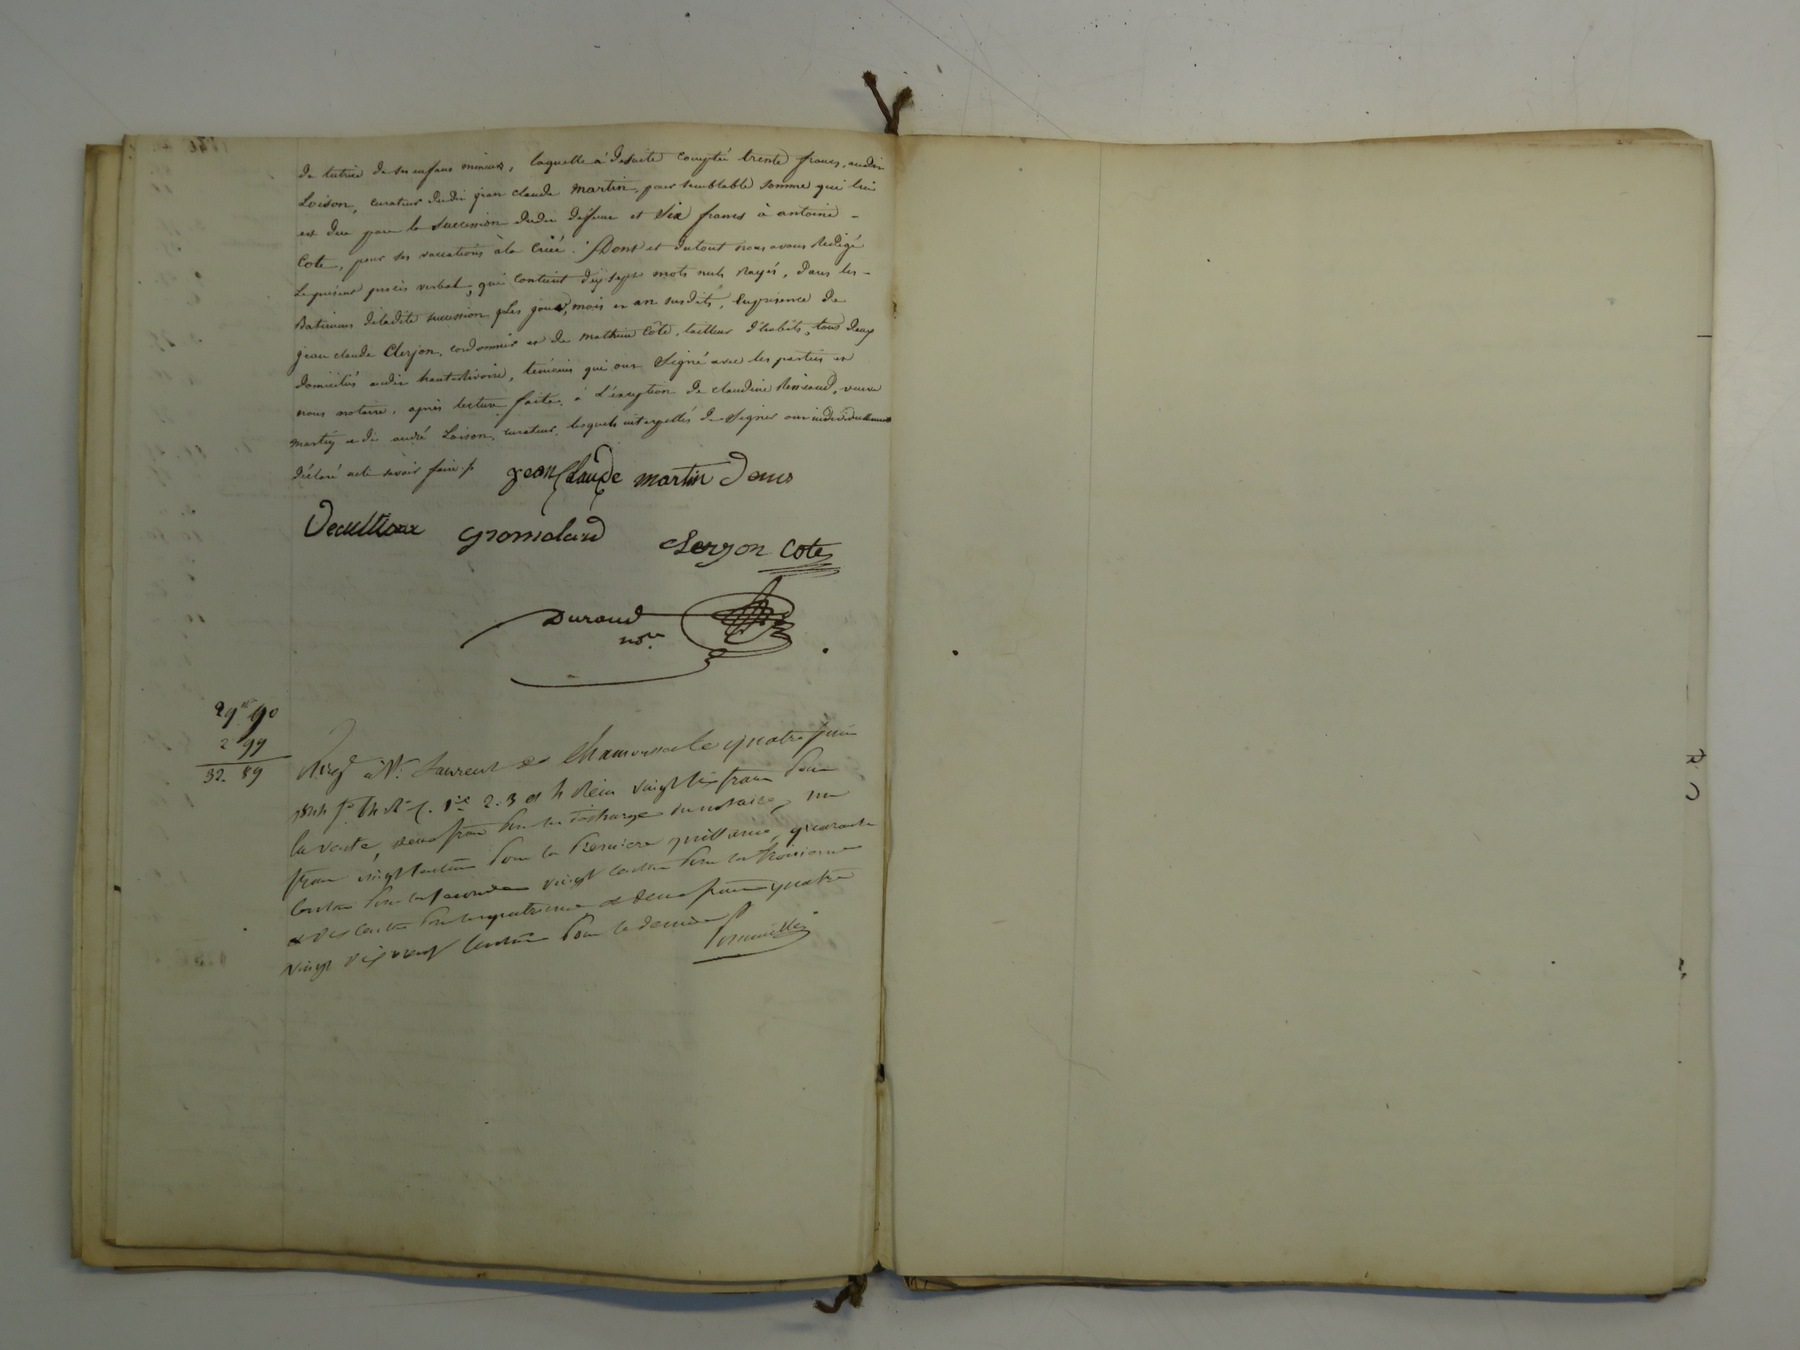 de tutrice de ses enfans mineurs, laquelle à desuite compté trente francs, audit
Loison, curateur dudit jean claude martin, pour semblable somme qui lui
est due par la succession dudit défunt et six francs à antoine
Cote, pour ses vacations à la criée. Dont et dutout nous avons rédigé
le présent procès verbal, qui contient dix sept mots nuls rayés, dans les
Batimens deladite succession, les jour, mois et an susdits, Enprésence de
jean claude Clerjon, cordonnier et de mathieu Côte, tailleur d'habits, tous deux
domiciliés audit hauterivoire, témoins qui ont signé avec les parties et
nous notaire, après lecture faite, à l'exception de claudine veuve
martin et de andré Loison, curateur, lesquels interpellés de signer ont individuellement
déclaré ne le savoir faire
jean Claude martin Denis
gromoland Clerjon Cote
Durand
nore
29 90
2 99
32. 89
Enregé à St. Laurent de Chamousset le quatre juin
1844 fo 2. 3 et 4 Reçu vingt six francs pour
la vente, deux francs pour la décharge du notaire, un
franc vingt centimes pour la première quittance, quarante
centimes pour la seconde vingt centimes pour la troisieme
et dix centimes pour la quatrieme et deux francs quatre
vingt dix neuf centimes pour le dixieme